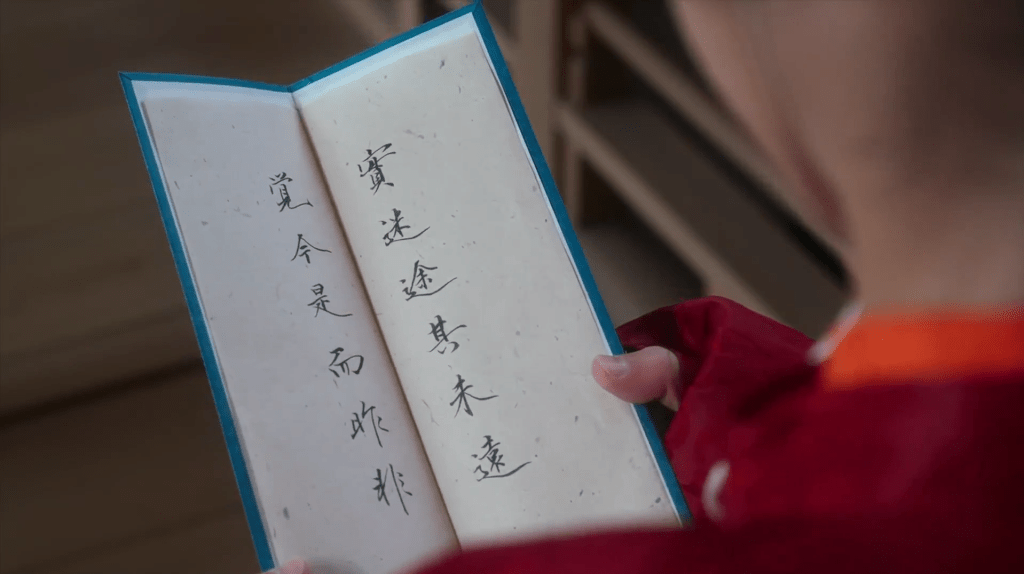 實迷途其未遠
覚今是而昨非